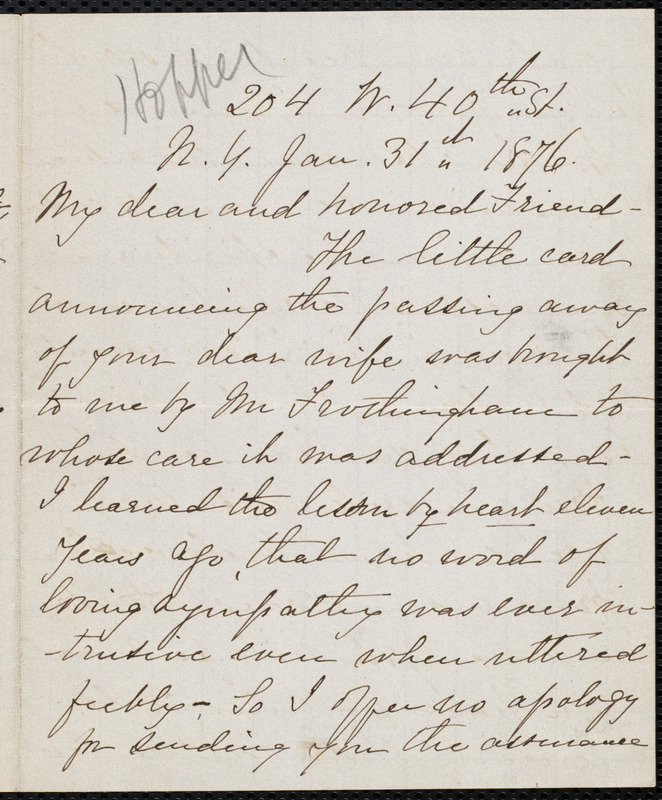 Hopper
204 W. 40th St.
N. Y. Jan. 31st 1876.
My dear and honored Friend -
The little card
announcing the passing away
of your dear wife was brought
to me by Mr Frothingham to
whose care it was addressed -
I learned the lesson by heart eleven
years ago, that no word of
loving sympathy was ever in-
-trusive even when uttered
feebly - So I offer no apology
for sending you the assurance